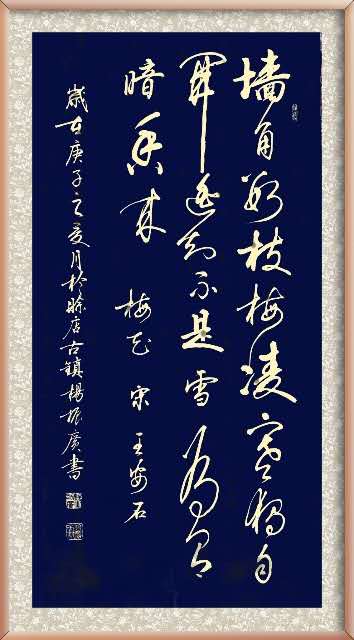 墙角数枝梅凌寒独自
開遥知不是雪為有
暗香来 梅花 宋 王安石
歲在庚子之夏月於賒店古鎮楊振廣書